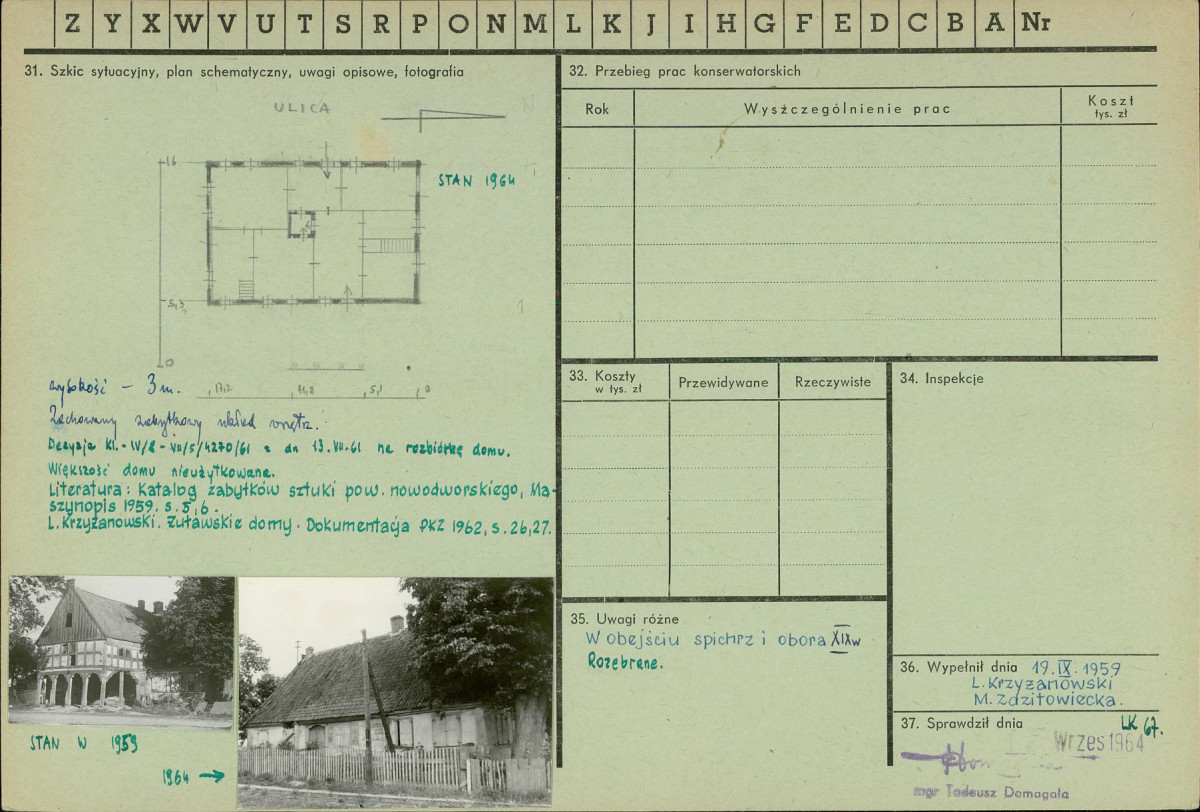 Z Y X W V U T S R P O N M L K J I H G F E D C B A Nr
31. Szkic sytuacyjny, plan schematyczny, uwagi opisowe, fotografia
ULICA
N
16
STAN 1964
5,3
0
17,2 11,2 5,1 0
wysokość – 3 m.
Zachowany zabytkowy układ wnętrz.
Decyzja Kl.-IV/2-VII/5/4270/61 z dn 13.VII.61 na rozbiórkę domu.
Większość domu nieużytkowane.
Literatura: Katalog zabytków sztuki pow. nowodworskiego, Ma-
szynopis 1959. s. 5, 6.
L. Krzyżanowski. Żuławskie domy. Dokumentacja PKZ 1962, s. 26, 27.
STAN W 1959
1964 →
32. Przebieg prac konserwatorskich
Rok
Wyszczególnienie prac
Koszt
tys. zł
33. Koszty
w tys. zł
Przewidywane
Rzeczywiste
34. Inspekcje
35. Uwagi różne
W obejściu spichrz i obora XIX w
Rozebrane.
36. Wypełnił dnia 19.IX.1959
L. Krzyżanowski
M. Zdzitowiecka.
37. Sprawdził dnia
LK 67.
Wrzes 1964
mgr Tadeusz Domagała